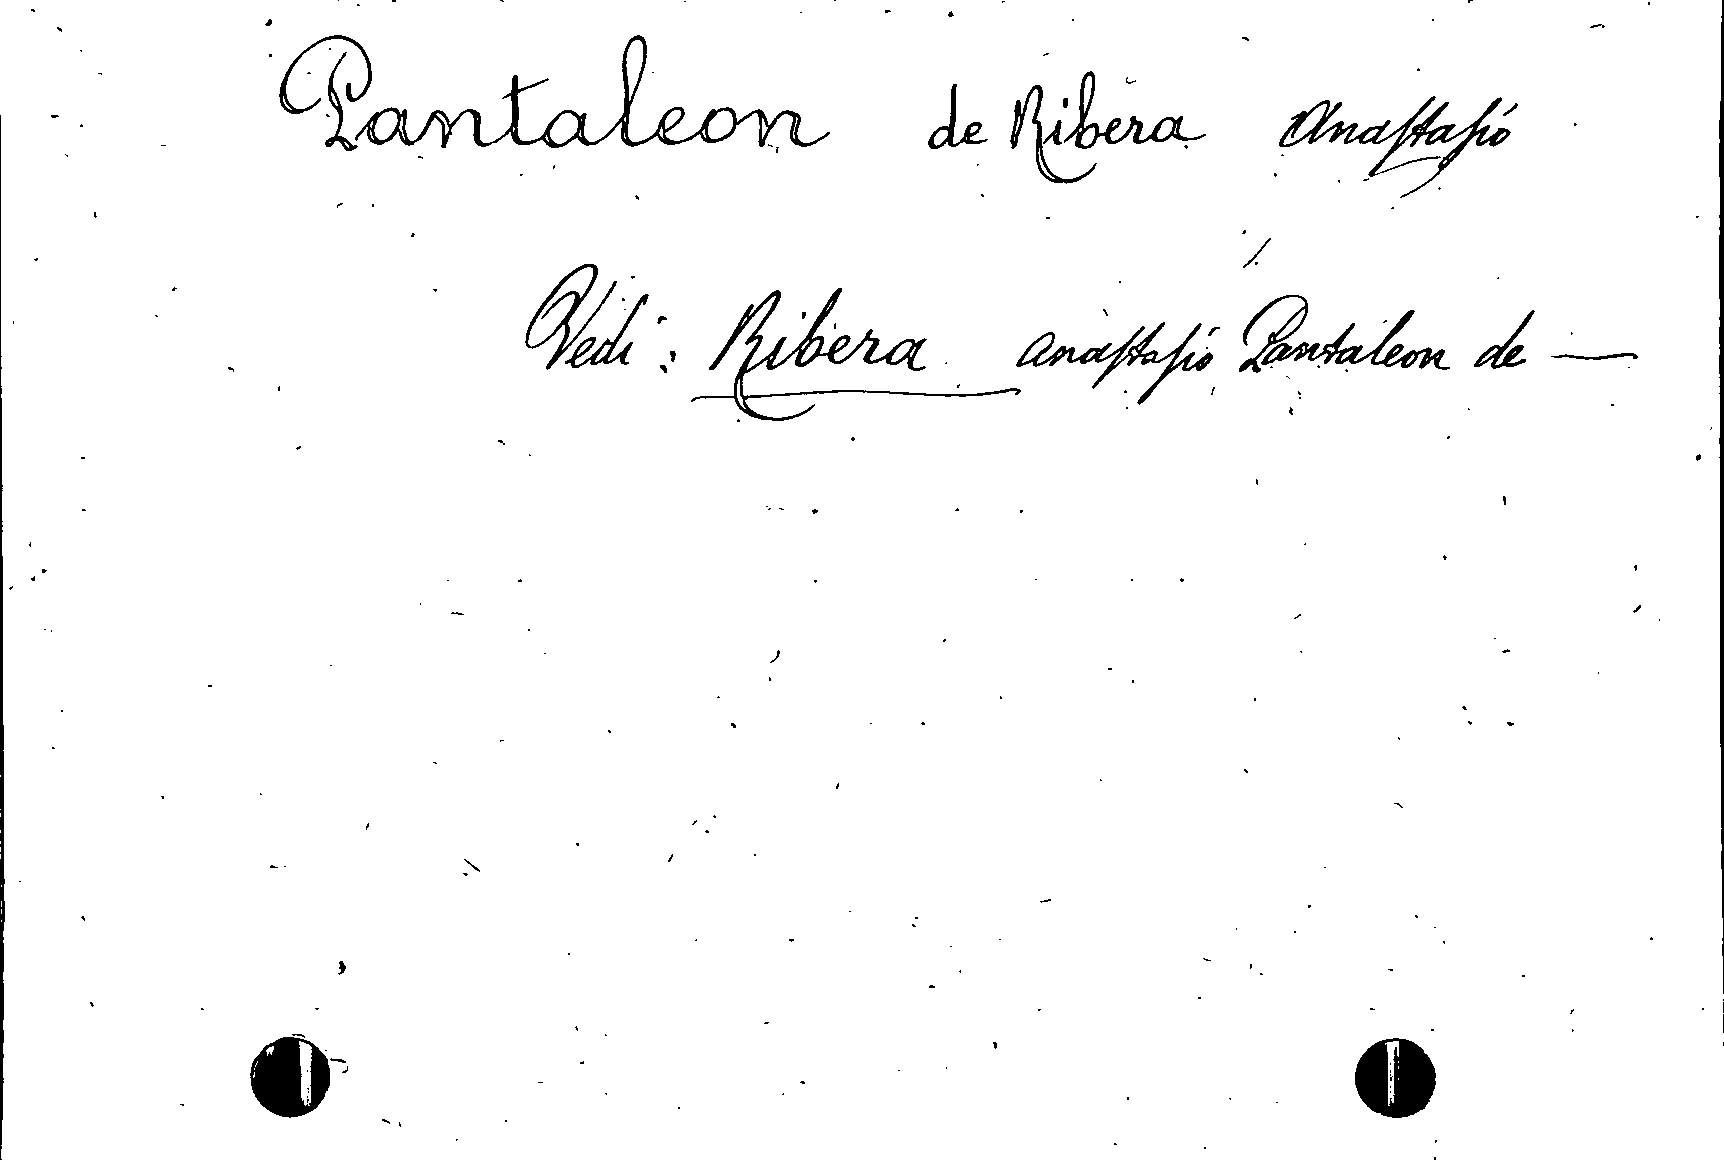 Pantaleon de Ribera Anastasio
Vedi: Ribera Anastasio Pantaleon de —